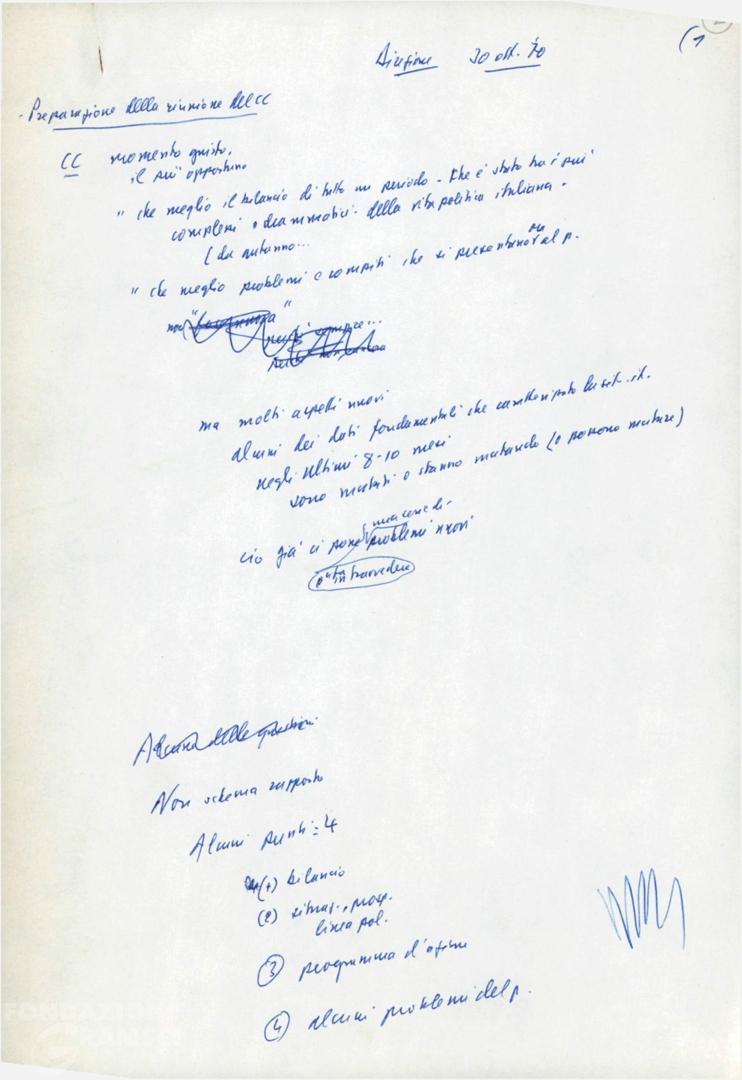 (1
Direzione 30 ott. 70
- Preparazione della riunione del CC
CC momento giusto,
il più opportuno
" che meglio il bilancio di tutto un periodo - che è stato tra i più
complessi e drammatici della vita politica italiana -
(da autunno...
" che meglio problemi e compiti che si presentano ora al p.
non
ma molti aspetti nuovi
alcuni dei dati fondamentali che caratterizzato la sit. it.
negli ultimi 8-10 mesi
sono mutati o stanno mutando (o possono mutare)
una serie di
ciò già ci pone problemi nuovi
intravedere
Alcune delle questioni
Non schema rapporto
Alcuni punti = 4
(1) bilancio
(2) situaz., prosp.
linea pol.
(3) programma d'azione
(4) alcuni problemi del p.
FONDAZIONE
GRAMSCI